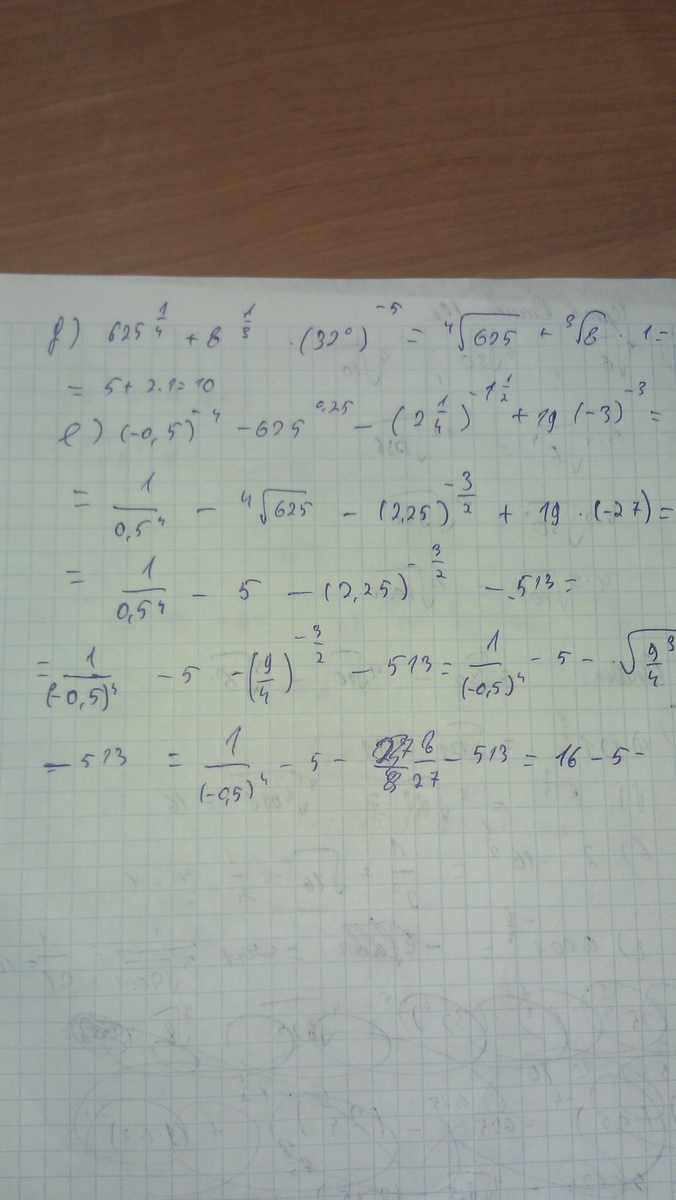 д) 625^{\frac{1}{4}} + 8^{\frac{1}{3}} \cdot (32^0)^{-5} = \sqrt[4]{625} + \sqrt[3]{8} \cdot 1 =
= 5 + 2 \cdot 1 = 10
е) (-0,5)^{-4} - 625^{0,25} - (2\frac{1}{4})^{-1\frac{1}{2}} + 19 (-3)^{-3} =
= \frac{1}{0,5^4} - \sqrt[4]{625} - (2,25)^{-\frac{3}{2}} + 19 \cdot (-27) =
= \frac{1}{0,5^4} - 5 - (2,25)^{-\frac{3}{2}} - 513 =
= \frac{1}{(-0,5)^4} - 5 - (\frac{9}{4})^{-\frac{3}{2}} - 513 = \frac{1}{(-0,5)^4} - 5 - \sqrt{\frac{9}{4}^3}
- 513 = \frac{1}{(-0,5)^4} - 5 - \frac{8}{27} - 513 = 16 - 5 -